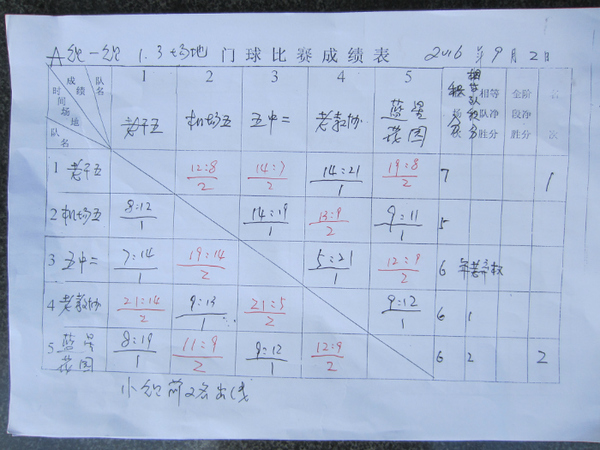 A组一组 1.3场地 门球比赛成绩表 2016年9月2日
成绩 队名 时间 场地 队名
1 2 3 4 5
老干五 机场五 五中二 老教协 蓝星花园 积分 相等队净胜分 全阶段净胜分 名次
1 老干五 12:8/2 14:7/2 14:21/1 19:8/2 7 1
2 机场五 8:12/1 14:19/1 13:9/2 9:11/1 5
3 五中二 7:14/1 19:14/2 5:21/1 12:9/2 6
4 老教协 21:14/2 9:13/1 21:5/2 9:12/1 6 1
5 蓝星花园 8:19/1 11:9/2 9:12/1 12:9/2 6 2 2
小组前2名出线